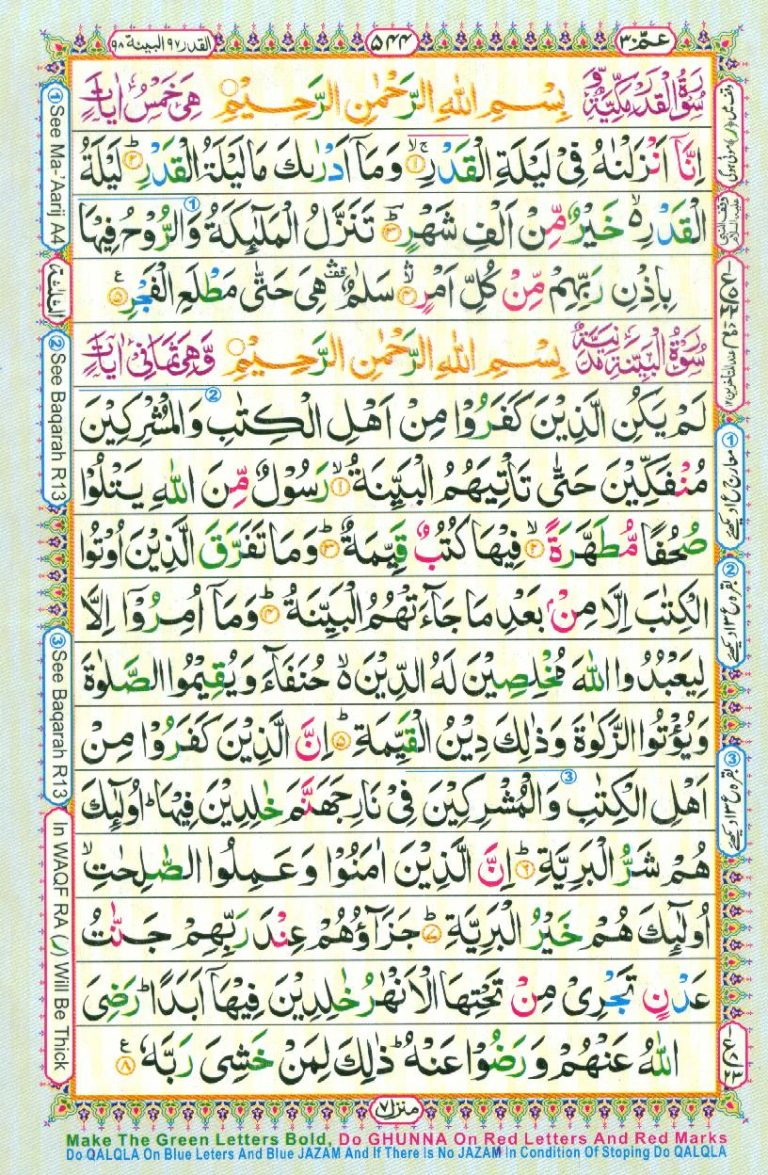 عمّ ٣٠
٥٤٤
القدر ٩٧ البينة ٩٨
سُوْرَةُ الْقَدْرِ مَكِّيَّةٌ بِسْمِ اللهِ الرَّحْمٰنِ الرَّحِيْمِ هِىَ خَمْسُ اٰيَاتٍ
اِنَّاۤ اَنْزَلْنٰهُ فِىْ لَيْلَةِ الْقَدْرِ ۚۖ‏ ﴿۱﴾ وَمَاۤ اَدْرٰىكَ مَا لَيْلَةُ الْقَدْرِ ؕ ﴿۲﴾ لَيْلَةُ
الْقَدْرِ ۙ خَيْرٌ مِّنْ اَلْفِ شَهْرٍ ؕ ﴿۳﴾ تَنَزَّلُ الْمَلٰٓٮِٕكَةُ وَالرُّوْحُ فِيْهَا ①
بِاِذْنِ رَبِّهِمْ مِّنْ كُلِّ اَمْرٍ ۙ ﴿۴﴾ سَلٰمٌ ۛ هِىَ حَتّٰى مَطْلَعِ الْفَجْرِ ﴿۵﴾ ع
سُوْرَةُ الْبَيِّنَةِ مَدَنِيَّةٌ بِسْمِ اللهِ الرَّحْمٰنِ الرَّحِيْمِ وَّهِىَ ثَمَانِىْ اٰيَاتٍ
لَمْ يَكُنِ الَّذِيْنَ كَفَرُوْا مِنْ اَهْلِ الْكِتٰبِ وَالْمُشْرِكِيْنَ ②
مُنْفَكِّيْنَ حَتّٰى تَاْتِيَهُمُ الْبَيِّنَةُ ۙ ﴿۱﴾ رَسُوْلٌ مِّنَ اللهِ يَتْلُوْا
صُحُفًا مُّطَهَّرَةً ۙ ﴿۲﴾ فِيْهَا كُتُبٌ قَيِّمَةٌ ؕ ﴿۳﴾ وَمَا تَفَرَّقَ الَّذِيْنَ اُوْتُوا
الْكِتٰبَ اِلَّا مِنْۢ بَعْدِ مَا جَآءَتْهُمُ الْبَيِّنَةُ ؕ ﴿۴﴾ وَمَاۤ اُمِرُوْۤا اِلَّا
لِيَعْبُدُوا اللهَ مُخْلِصِيْنَ لَهُ الدِّيْنَ ۙ حُنَفَآءَ وَيُقِيْمُوا الصَّلٰوةَ
وَيُؤْتُوا الزَّكٰوةَ وَذٰلِكَ دِيْنُ الْقَيِّمَةِ ؕ ﴿۵﴾ اِنَّ الَّذِيْنَ كَفَرُوْا مِنْ
اَهْلِ الْكِتٰبِ وَالْمُشْرِكِيْنَ فِىْ نَارِ جَهَنَّمَ خٰلِدِيْنَ فِيْهَا ؕ اُولٰٓٮِٕكَ ③
هُمْ شَرُّ الْبَرِيَّةِ ؕ ﴿۶﴾ اِنَّ الَّذِيْنَ اٰمَنُوْا وَعَمِلُوا الصّٰلِحٰتِ ۙ
اُولٰٓٮِٕكَ هُمْ خَيْرُ الْبَرِيَّةِ ؕ ﴿۷﴾ جَزَآؤُهُمْ عِنْدَ رَبِّهِمْ جَنّٰتُ
عَدْنٍ تَجْرِىْ مِنْ تَحْتِهَا الْاَنْهٰرُ خٰلِدِيْنَ فِيْهَاۤ اَبَدًا ؕ رَضِىَ
اللهُ عَنْهُمْ وَرَضُوْا عَنْهُ ؕ ذٰلِكَ لِمَنْ خَشِىَ رَبَّهٗ ﴿۸﴾ ع
منزل ٧
① See Ma-'Aarij A4
② See Baqarah R13
③ See Baqarah R13
In WAQF RA (ر) Will Be Thick
① معارج ع ا دیکھئے
② بقره ع ١٣ دیکھئے
③ بقره ع ١٣ دیکھئے
Make The Green Letters Bold, Do GHUNNA On Red Letters And Red Marks
Do QALQLA On Blue Leters And Blue JAZAM And If There Is No JAZAM In Condition Of Stoping Do QALQLA